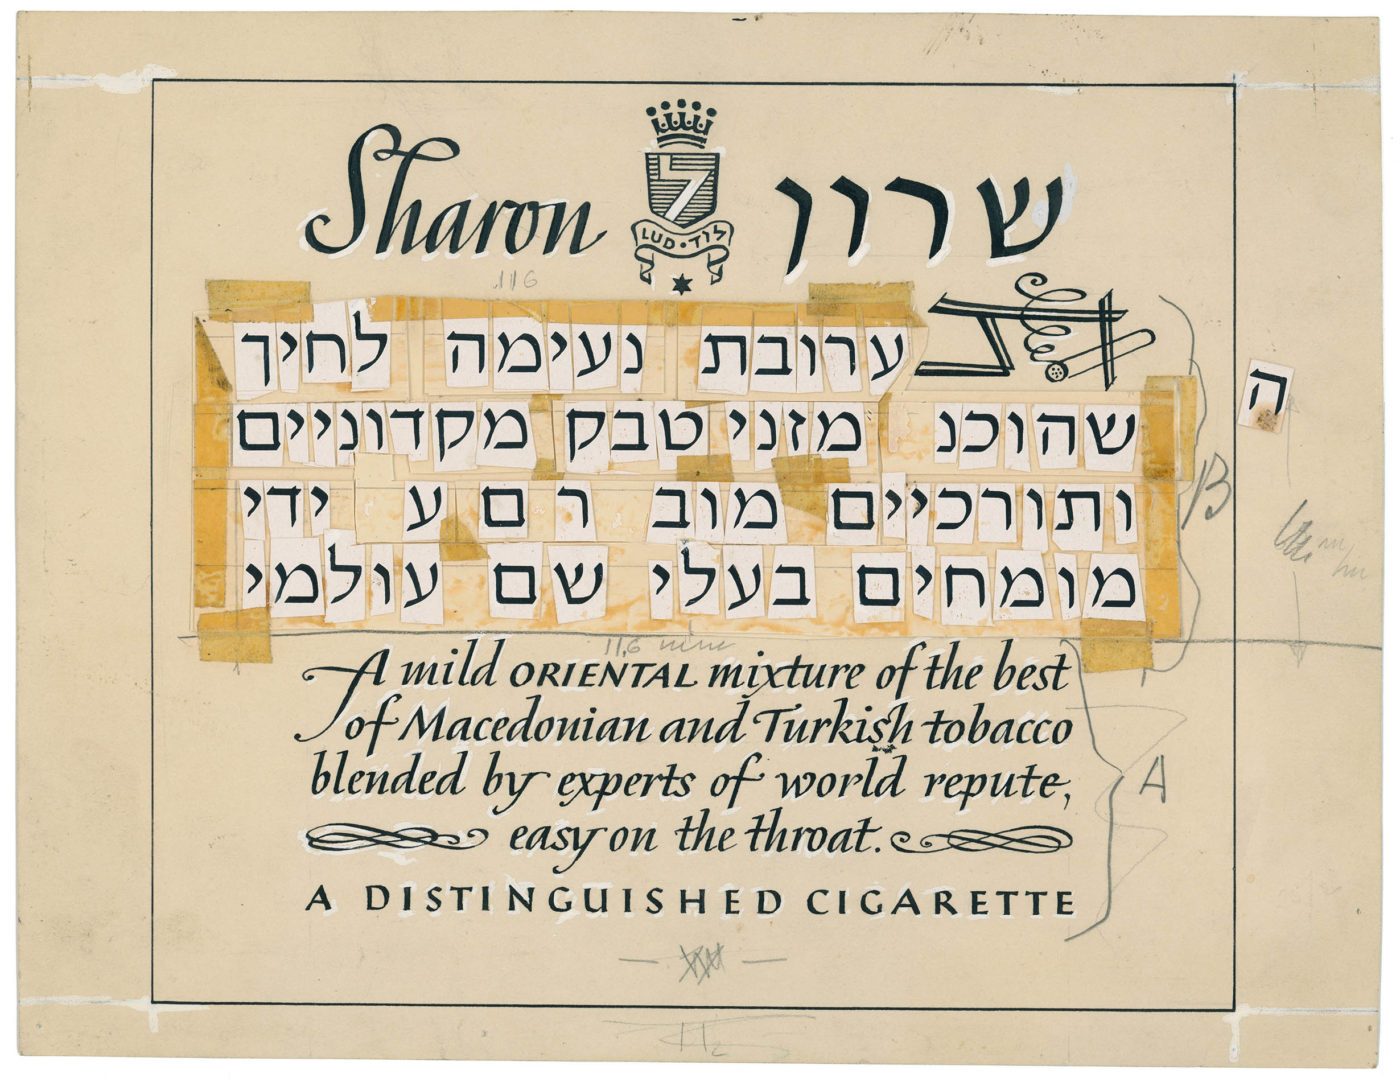 Sharon שרון
LUD · לוד
116
תערובת נעימה לחיך
ה
שהוכנ מזני טבק מקדוניים
B
ותורכיים מוב ר ם ע ידי
מומחים בעלי שם עולמי
116
A mild ORIENTAL mixture of the best
of Macedonian and Turkish tobacco
blended by experts of world repute,
A
easy on the throat.
A DISTINGUISHED CIGARETTE